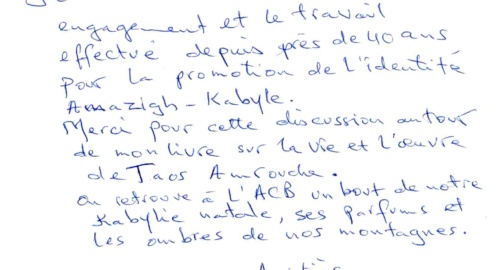 engagement et le travail
effectué depuis près de 40 ans
pour la promotion de l'identité
Amazigh-Kabyle.
Merci pour cette discussion autour
de mon livre sur la vie et l'œuvre
de Taos Amrouche.
on retrouve à L'ACB un bout de notre
Kabylie natale, ses parfums et
les ombres de nos montagnes.